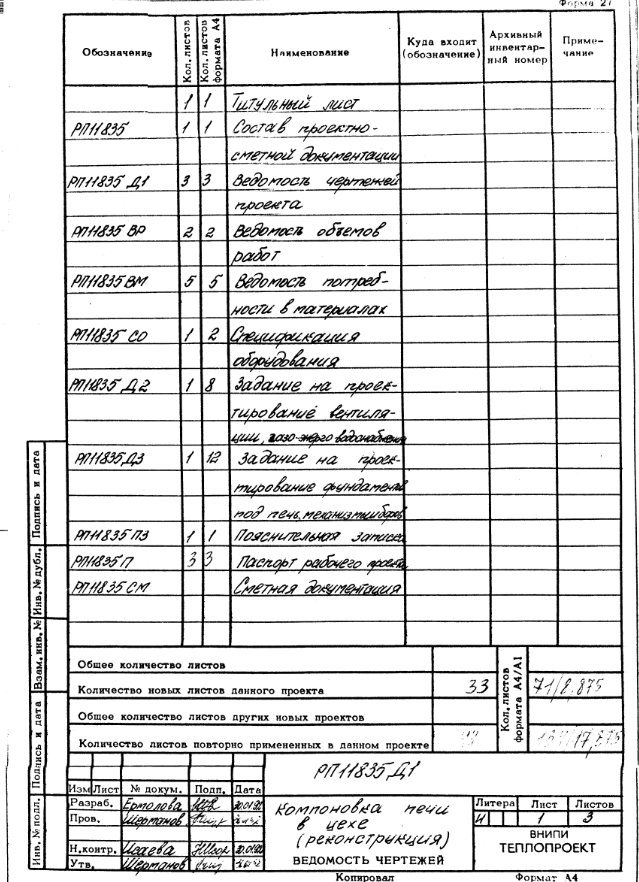 Форма 27
Обозначение Кол. листов Кол. листов формата А4 Наименование Куда входит (обозначение) Архивный инвентарный номер Примечание
1 1 Титульный лист
РП11835 1 1 Состав проектно-
сметной документации
РП11835 Д1 3 3 Ведомость чертежей
проекта
РП11835 ВР 2 2 Ведомость объемов
работ
РП11835 ВМ 5 5 Ведомость потреб-
ности в материалах
РП11835 СО 1 2 Спецификация
оборудования
РП11835 Д2 1 8 Задание на проек-
тирование вентиля-
ции, газо-энерго водоснабжения
РП11835 Д3 1 12 Задание на проек-
тирование фундаментов
под печь, механизмы
РП11835 ПЗ 1 1 Пояснительная записка
РП11835 П 3 3 Паспорт рабочего проекта
РП11835 СМ Сметная документация
Общее количество листов
Количество новых листов данного проекта 33 Кол. листов формата А4/А1 71/8,875
Общее количество листов других новых проектов
Количество листов повторно примененных в данном проекте
РП11835 Д1
Изм Лист № докум. Подп. Дата
Разраб. Ермолова
Пров. Шерманов
Н.контр. Исаева
Утв. Шерманов
Компоновка печи
в цехе
(реконструкция)
ВЕДОМОСТЬ ЧЕРТЕЖЕЙ
Литера Лист Листов
И 1 3
ВНИПИ
ТЕПЛОПРОЕКТ
Копировал Формат А4
Инв. № подл. Подпись и дата Взам. инв. № Инв. № дубл. Подпись и дата